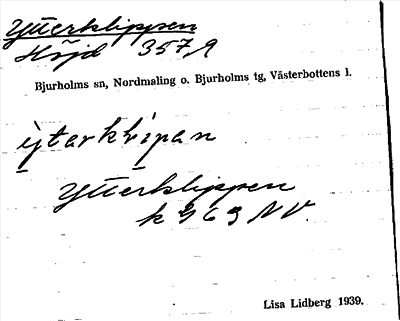 Ytterklippen
Höjd 357,9
Bjurholms sn, Nordmaling o. Bjurholms tg, Västerbottens l.
Ytterklippen
k 969 NV.
Lisa Lidberg 1939.